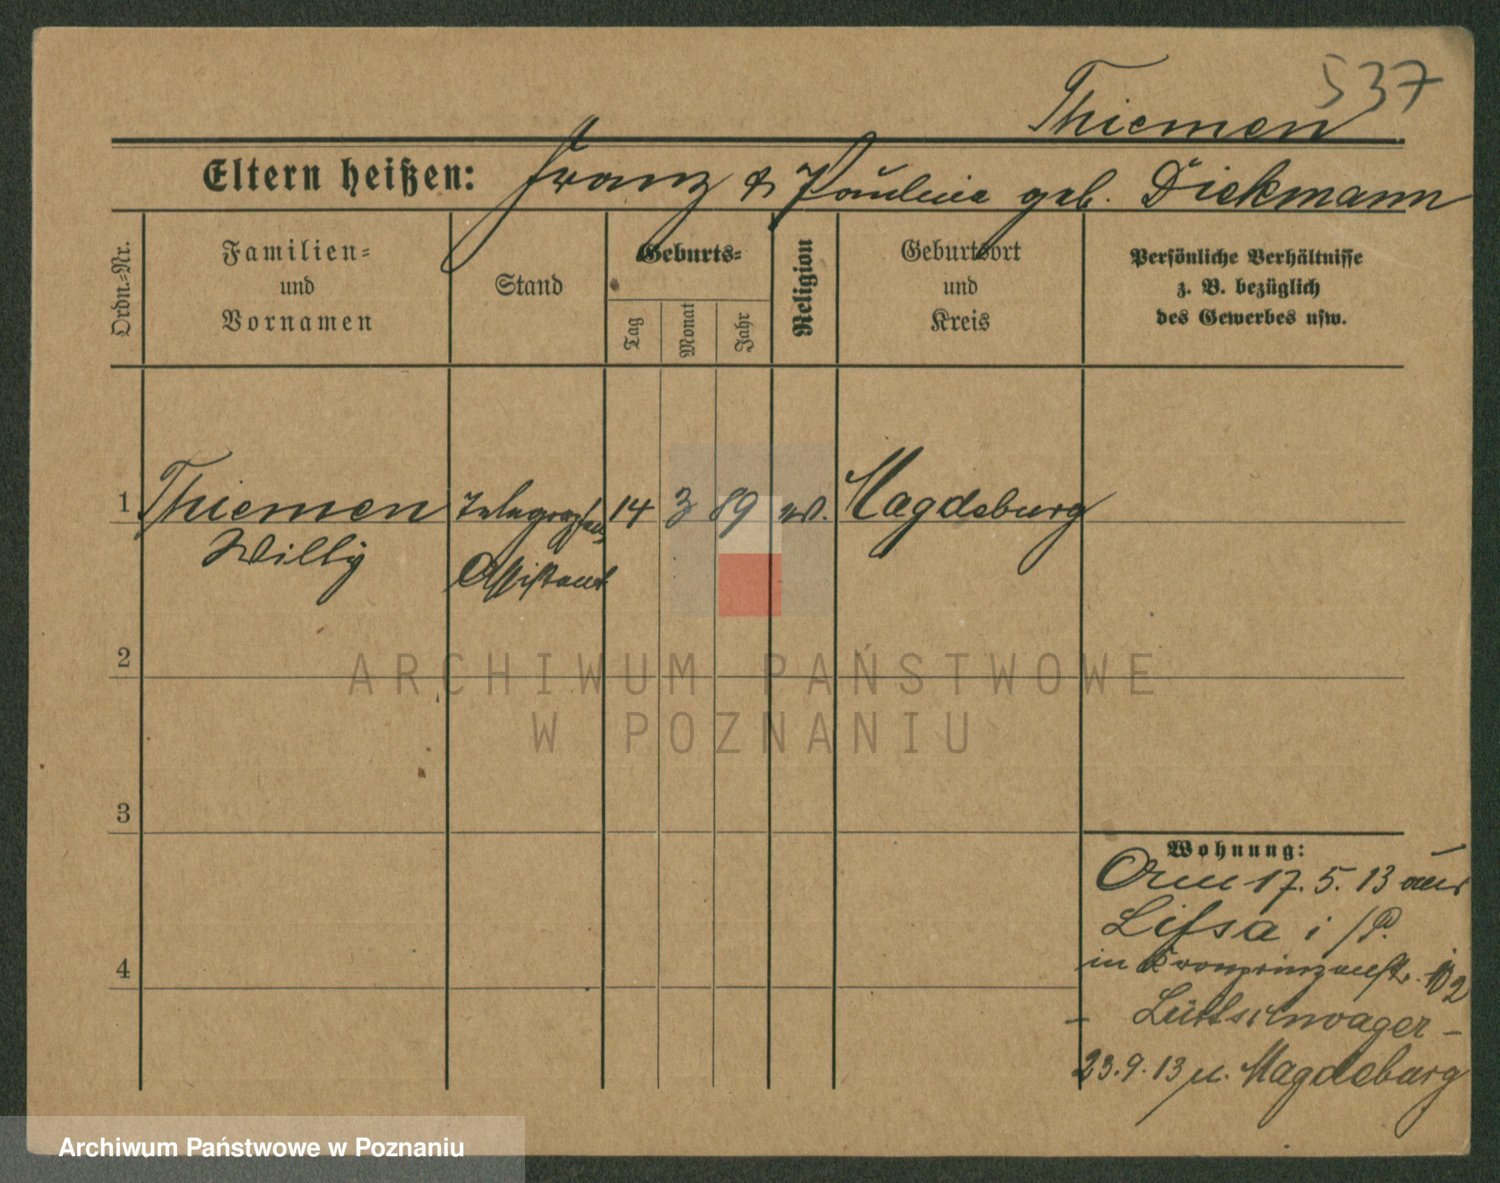 537
Thiemen
Eltern heißen: Franz & Pauline geb. Diekmann
Ordn.-Nr.
Familien-
und
Vornamen
Stand
Geburts-
Tag
Monat
Jahr
Religion
Geburtsort
und
Kreis
Persönliche Verhältnisse
z. B. bezüglich
des Gewerbes usw.
1 Thiemen Telegrafen 14 3 89 ev. Magdeburg
Willy Assistent
2
3
4
ARCHIWUM PAŃSTWOWE
W POZNANIU
Wohnung:
17. 5. 13 aus
Lissa i/P.
in Kronprinzenstr. 2
- Lüttschwager -
23.9.13 n. Magdeburg
Archiwum Państwowe w Poznaniu